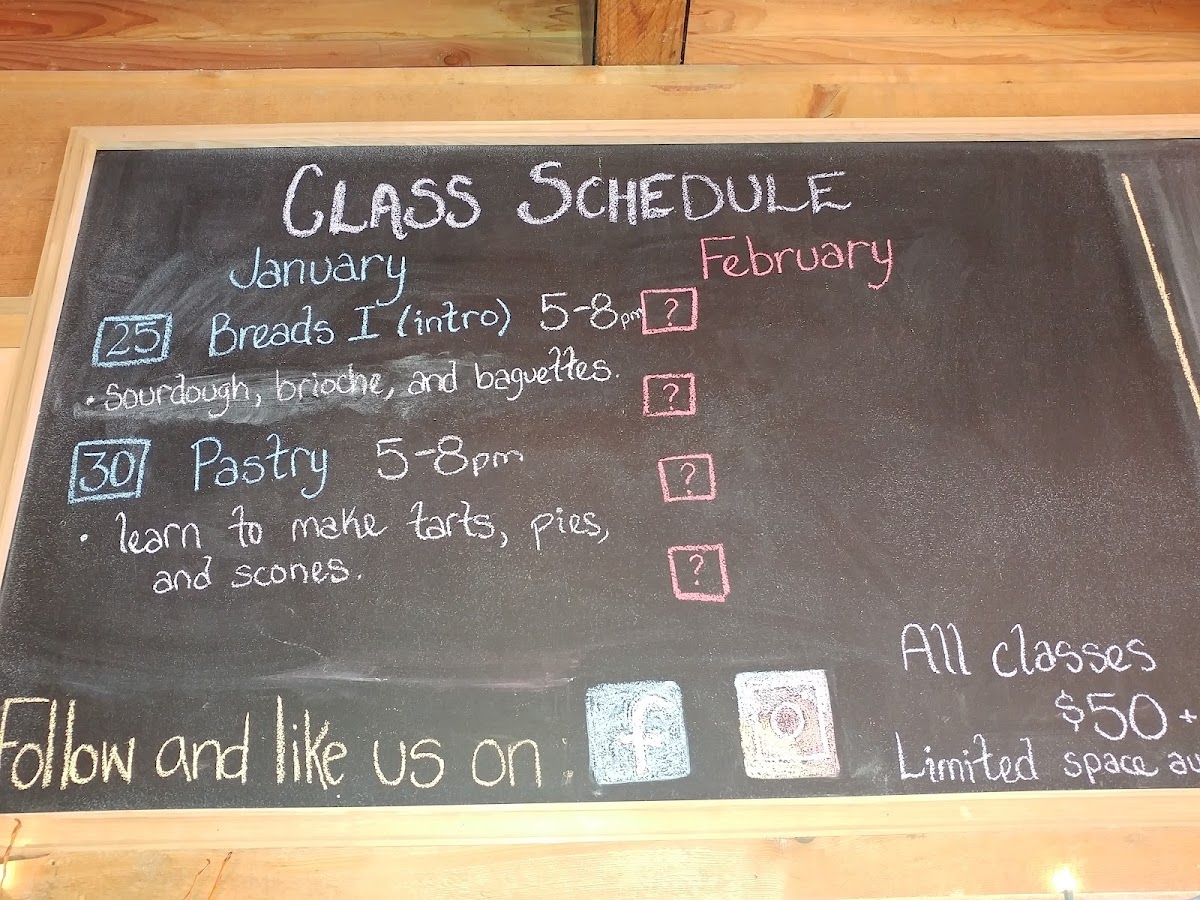 CLASS SCHEDULE
January
25 Breads I (intro) 5-8pm
• sourdough, brioche, and baguettes.
30 Pastry 5-8pm
• learn to make tarts, pies,
and scones.
February
?
?
?
?
Follow and like us on f
All classes
$50 +
Limited space